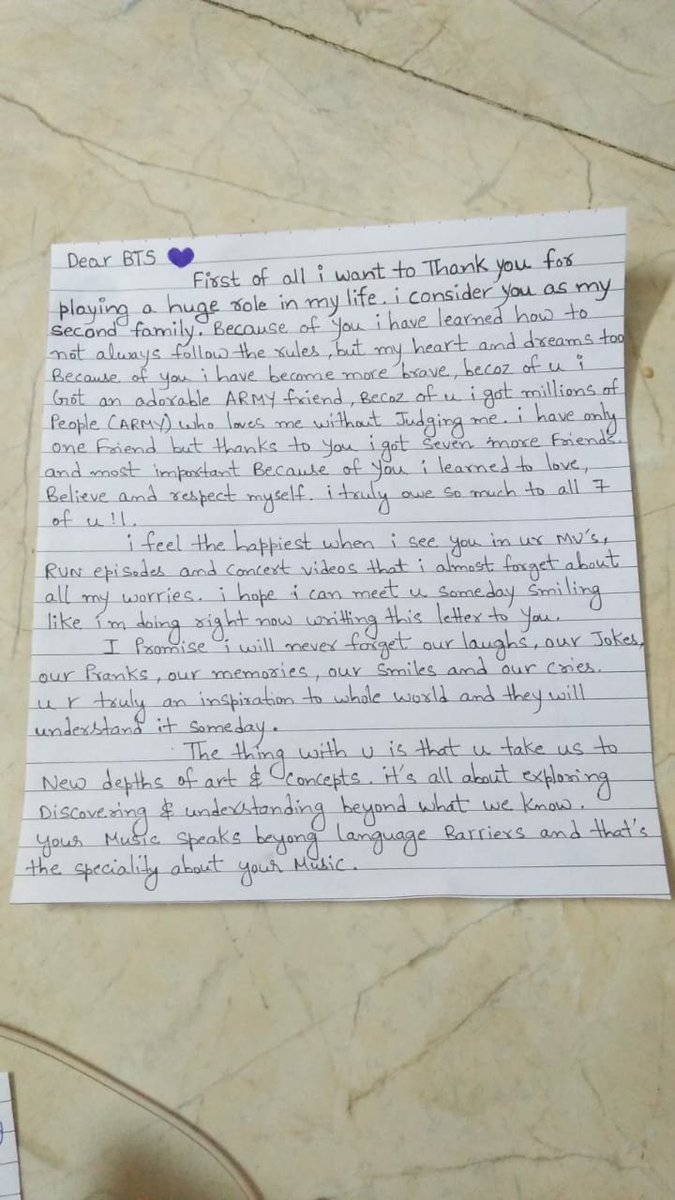 Dear BTS 💜
First of all i want to Thank you for
playing a huge role in my life. i consider you as my
second family. Because of you i have learned how to
not always follow the rules, but my heart and dreams too
Because of you i have become more brave, becoz of u i
Got an adorable ARMY friend, Becoz of u i got millions of
People (ARMY) who loves me without Judging me. i have only
one Friend but thanks to you i got seven more Friends.
and most important Because of you i learned to love,
Believe and respect myself. i truly owe so much to all 7
of u !!.
i feel the happiest when i see you in ur MV's,
RUN episodes and concert videos that i almost forget about
all my worries. i hope i can meet u someday smiling
like i'm doing right now writting this letter to you.
I Promise i will never forget our laughs, our Jokes,
our Pranks, our memories, our smiles and our cries.
u r truly an inspiration to whole world and they will
understand it someday.
The thing with u is that u take us to
New depths of art & concepts. it's all about exploring
Discovering & understanding beyond what we know.
your Music speaks beyong language Barriers and that's
the speciality about your Music.